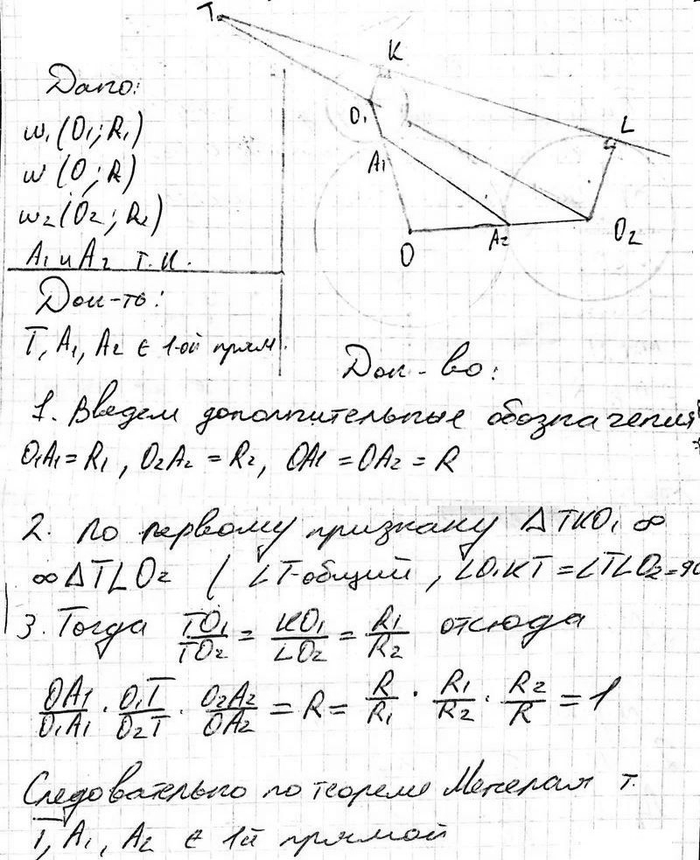 T
K
O₁
L
A₁
O
A₂
O₂
Дано:
w₁(O₁; R₁)
w(O; R)
w₂(O₂; R₂)
A₁ и A₂ т.к.
Док-ть:
T, A₁, A₂ ∈ 1-ой прям.
Док-во:
1. Введем дополнительные обозначения
O₁A₁ = R₁, O₂A₂ = R₂, OA₁ = OA₂ = R
2. По первому признаку ΔTKO₁ ∞
∞ ΔTLO₂ (∠T-общий, ∠O₁KT = ∠TLO₂ = 90
3. Тогда TO₁/TO₂ = KO₁/LO₂ = R₁/R₂ отсюда
OA₁/O₁A₁ · O₁T/O₂T · O₂A₂/OA₂ = R = R/R₁ · R₁/R₂ · R₂/R = 1
Следовательно по теореме Менелая т.
T, A₁, A₂ ∈ 1й прямой